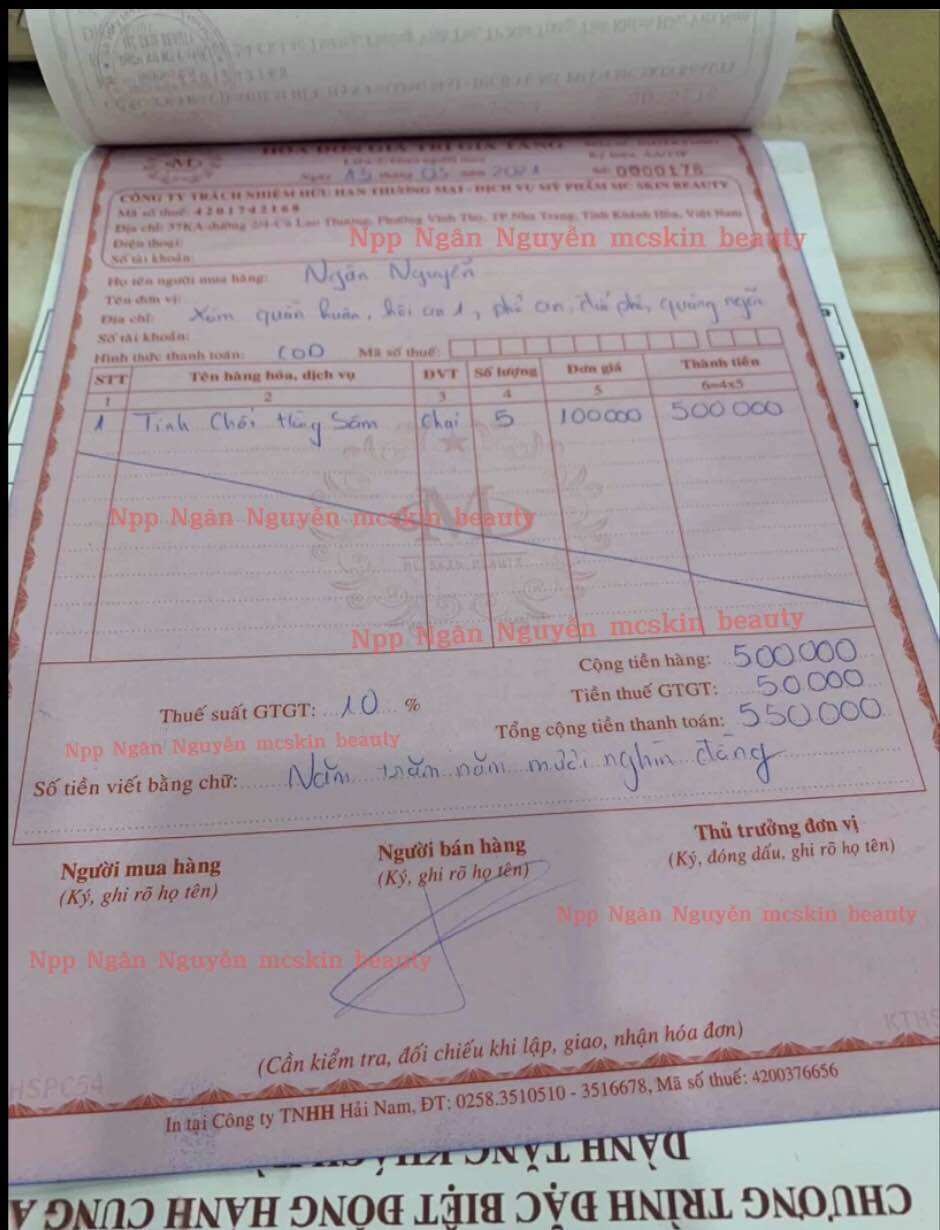 HÓA ĐƠN GIÁ TRỊ GIA TĂNG
Ngày 15 tháng 05 năm 2021
Số: 0000176
CÔNG TY TRÁCH NHIỆM HỮU HẠN THƯƠNG MẠI - DỊCH VỤ MỸ PHẨM MC SKIN BEAUTY
Mã số thuế: 4201742168
Địa chỉ: 37KA đường 2/4 Cù Lao Thượng, Phường Vĩnh Thọ, TP Nha Trang, Tỉnh Khánh Hòa, Việt Nam
Điện thoại:
Npp Ngân Nguyễn mcskin beauty
Số tài khoản:
Họ tên người mua hàng: Ngân Nguyễn
Tên đơn vị:
Địa chỉ: Xóm quán huân, hội an 1, phổ an, đức phổ, quảng ngãi
Số tài khoản:
Hình thức thanh toán: COD Mã số thuế:
STT Tên hàng hóa, dịch vụ ĐVT Số lượng Đơn giá Thành tiền
1 2 3 4 5 6=4x5
1 Tinh Chất Hồng Sâm Chai 5 100000 500 000
M
Npp Ngân Nguyễn mcskin beauty
MC SKIN BEAUTY
Npp Ngân Nguyễn mcskin beauty
Cộng tiền hàng: 500.000
Thuế suất GTGT: 10 % Tiền thuế GTGT: 50.000
Tổng cộng tiền thanh toán: 550.000
Npp Ngân Nguyễn mcskin beauty
Số tiền viết bằng chữ: Năm trăm năm mươi nghìn đồng
Người mua hàng Người bán hàng Thủ trưởng đơn vị
(Ký, ghi rõ họ tên) (Ký, ghi rõ họ tên) (Ký, đóng dấu, ghi rõ họ tên)
Npp Ngân Nguyễn mcskin beauty
Npp Ngân Nguyễn mcskin beauty
(Cần kiểm tra, đối chiếu khi lập, giao, nhận hóa đơn)
In tại Công ty TNHH Hải Nam, ĐT: 0258.3510510 - 3516678, Mã số thuế: 4200376656
CHƯƠNG TRÌNH ĐẶC BIỆT ĐỒNG HÀNH CÙNG